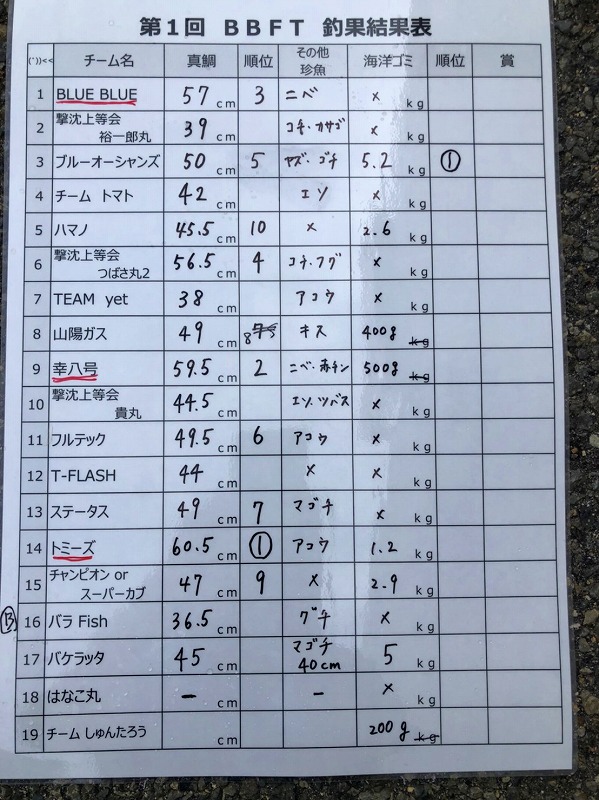 第１回 ＢＢＦＴ 釣果結果表
(°))<< チーム名 真鯛 順位 その他珍魚 海洋ゴミ 順位 賞
1 BLUE BLUE 57 cm 3 ニベ × kg
2 撃沈上等会 裕一郎丸 39 cm コチ・カサゴ × kg
3 ブルーオーシャンズ 50 cm 5 ヤズ・ゴチ 5.2 kg ①
4 チーム トマト 42 cm エソ × kg
5 ハマノ 45.5 cm 10 × 2.6 kg
6 撃沈上等会 つばさ丸2 56.5 cm 4 コチ・フグ × kg
7 TEAM yet 38 cm アコウ × kg
8 山陽ガス 49 cm 8 キス 400g kg
9 幸八号 59.5 cm 2 ニベ・赤チン 500g kg
10 撃沈上等会 貴丸 44.5 cm エソ、ツバス × kg
11 フルテック 49.5 cm 6 アコウ × kg
12 T-FLASH 44 cm × × kg
13 ステータス 49 cm 7 マゴチ × kg
14 トミーズ 60.5 cm ① アコウ 1.2 kg
15 チャンピオン or スーパーカブ 47 cm 9 × 2.9 kg
⑬ 16 バラ Fish 36.5 cm グチ × kg
17 バケラッタ 45 cm マゴチ 40cm 5 kg
18 はなこ丸 － cm － × kg
19 チーム しゅんたろう cm 200g kg